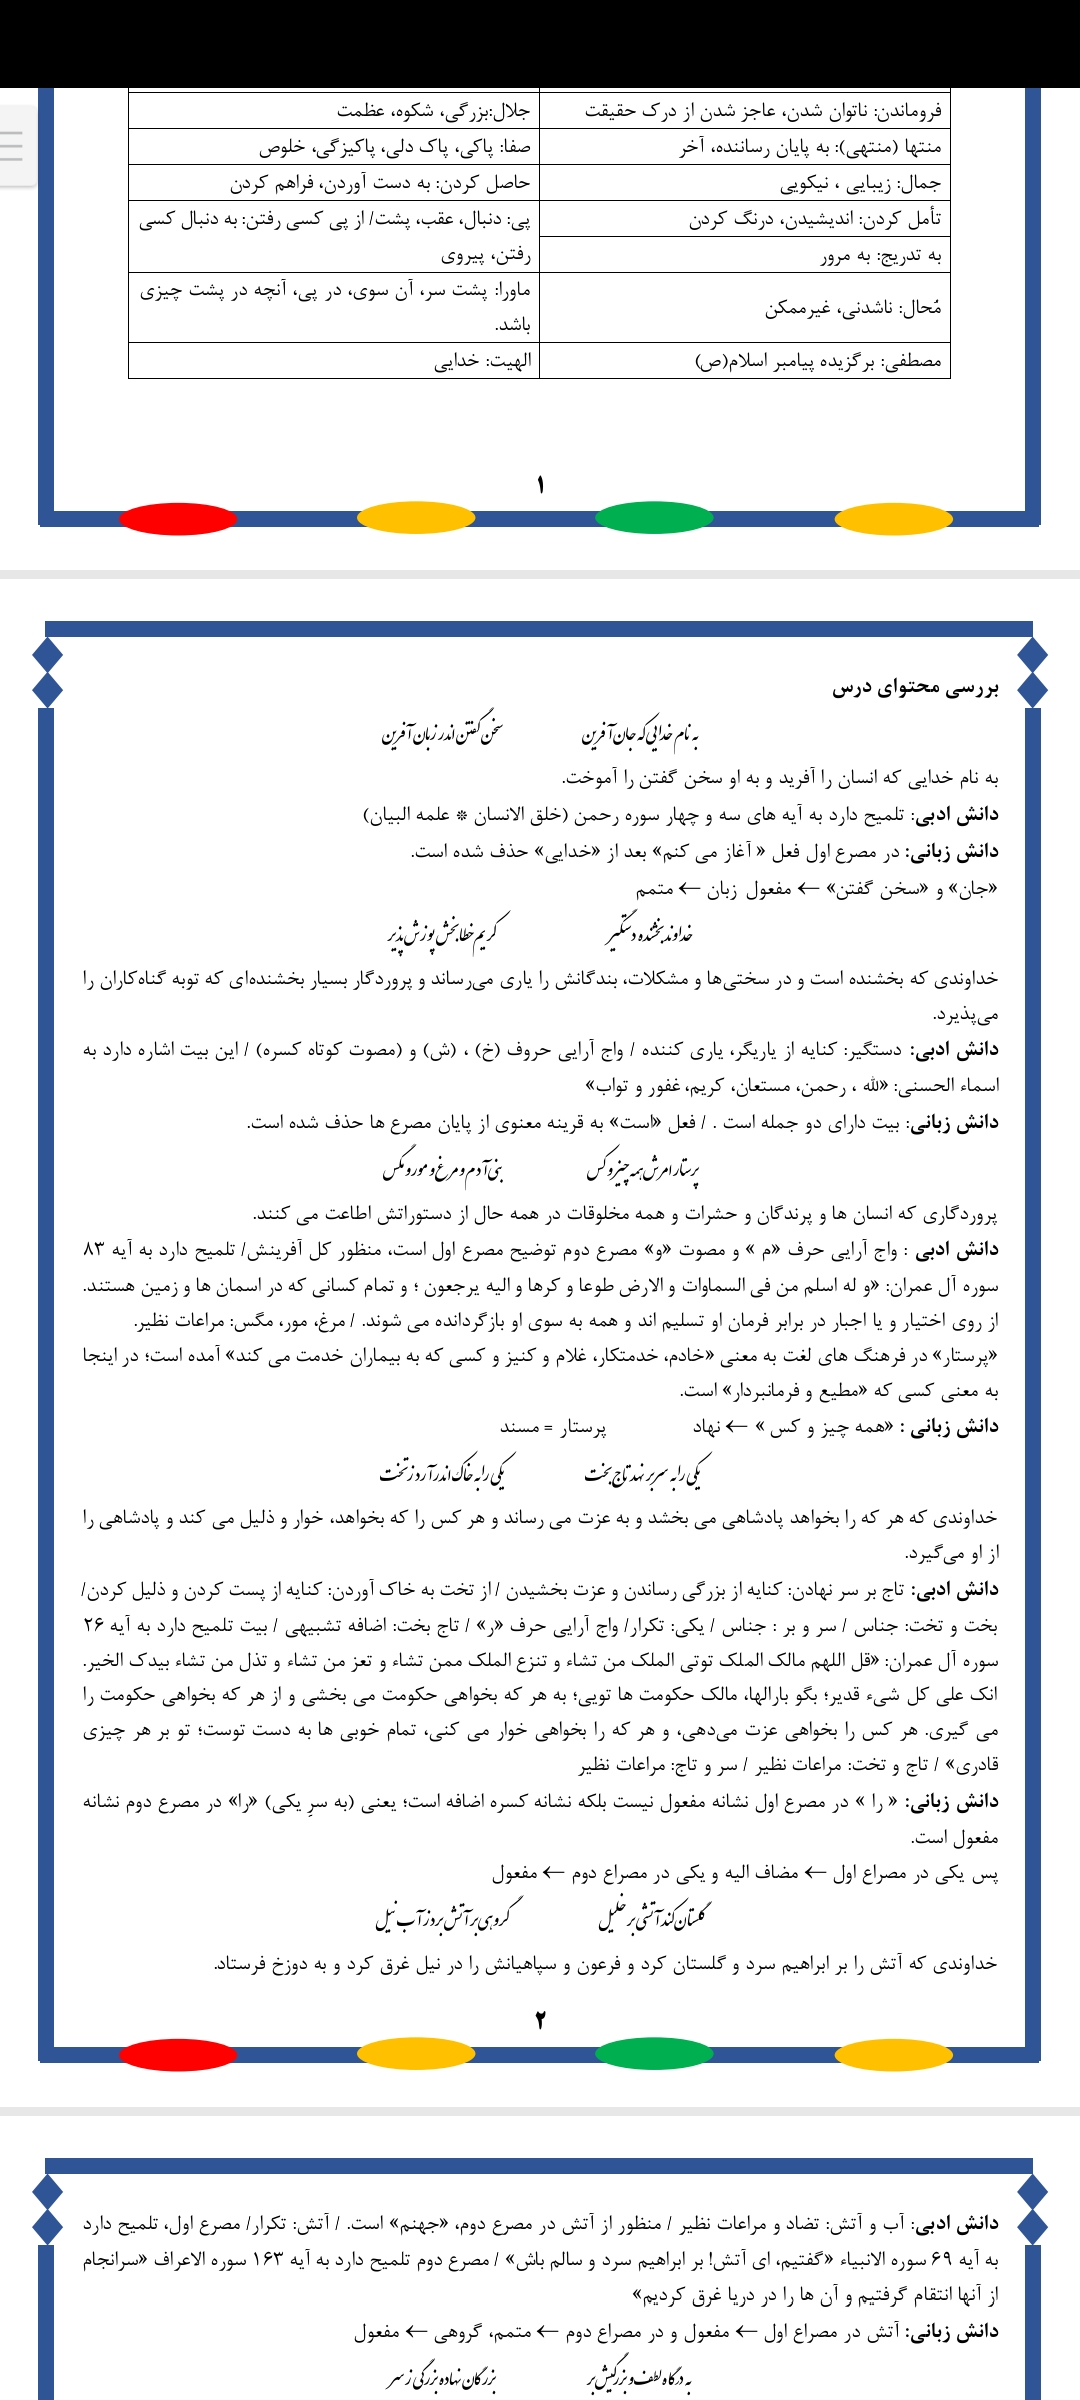 فروماندن: ناتوان شدن، عاجز شدن از درک حقیقت
جلال:بزرگی، شکوه، عظمت
منتها (منتهی): به پایان رساننده، آخر
صفا: پاکی، پاک دلی، پاکیزگی، خلوص
جمال: زیبایی ، نیکویی
حاصل کردن: به دست آوردن، فراهم کردن
تأمل کردن: اندیشیدن، درنگ کردن
پی: دنبال، عقب، پشت/ از پی کسی رفتن: به دنبال کسی
رفتن، پیروی
به تدریج: به مرور
مُحال: ناشدنی، غیرممکن
ماورا: پشت سر، آن سوی، در پی، آنچه در پشت چیزی
باشد.
مصطفی: برگزیده پیامبر اسلام(ص)
الهیت: خدایی
۱
بررسی محتوای درس
به نام خدایی که جان آفرین سخن گفتن اندر زبان آفرین
به نام خدایی که انسان را آفرید و به او سخن گفتن را آموخت.
دانش ادبی: تلمیح دارد به آیه های سه و چهار سوره رحمن (خلق الانسان * علمه البیان)
دانش زبانی: در مصرع اول فعل « آغاز می کنم» بعد از «خدایی» حذف شده است.
«جان» و «سخن گفتن» ← مفعول زبان ← متمم
خداوند بخشنده دستگیر کریم خطابخش پوزش پذیر
خداوندی که بخشنده است و در سختی‌ها و مشکلات، بندگانش را یاری می‌رساند و پروردگار بسیار بخشنده‌ای که توبه گناه‌کاران را
می‌پذیرد.
دانش ادبی: دستگیر: کنایه از یاریگر، یاری کننده / واج آرایی حروف (خ) ، (ش) و (مصوت کوتاه کسره) / این بیت اشاره دارد به
اسماء الحسنی: «لله ، رحمن، مستعان، کریم، غفور و تواب»
دانش زبانی: بیت دارای دو جمله است . / فعل «است» به قرینه معنوی از پایان مصرع ها حذف شده است.
پرستار امرش همه چیز و کس بنی آدم و مرغ و مور و مگس
پروردگاری که انسان ها و پرندگان و حشرات و همه مخلوقات در همه حال از دستوراتش اطاعت می کنند.
دانش ادبی : واج آرایی حرف «م » و مصوت «و» مصرع دوم توضیح مصرع اول است، منظور کل آفرینش/ تلمیح دارد به آیه ۸۳
سوره آل عمران: «و له اسلم من فی السماوات و الارض طوعا و کرها و الیه یرجعون ؛ و تمام کسانی که در اسمان ها و زمین هستند.
از روی اختیار و یا اجبار در برابر فرمان او تسلیم اند و همه به سوی او بازگردانده می شوند. / مرغ، مور، مگس: مراعات نظیر.
«پرستار» در فرهنگ های لغت به معنی «خادم، خدمتکار، غلام و کنیز و کسی که به بیماران خدمت می کند» آمده است؛ در اینجا
به معنی کسی که «مطیع و فرمانبردار» است.
دانش زبانی : «همه چیز و کس » ← نهاد پرستار = مسند
یکی را به سر بر نهد تاج بخت یکی را به خاک اندر آرد ز تخت
خداوندی که هر که را بخواهد پادشاهی می بخشد و به عزت می رساند و هر کس را که بخواهد، خوار و ذلیل می کند و پادشاهی را
از او می‌گیرد.
دانش ادبی: تاج بر سر نهادن: کنایه از بزرگی رساندن و عزت بخشیدن / از تخت به خاک آوردن: کنایه از پست کردن و ذلیل کردن/
بخت و تخت: جناس / سر و بر : جناس / یکی: تکرار/ واج آرایی حرف «ر» / تاج بخت: اضافه تشبیهی / بیت تلمیح دارد به آیه ۲۶
سوره آل عمران: «قل اللهم مالک الملک توتی الملک من تشاء و تنزع الملک ممن تشاء و تعز من تشاء و تذل من تشاء بیدک الخیر.
انک علی کل شیء قدیر؛ بگو بارالها، مالک حکومت ها تویی؛ به هر که بخواهی حکومت می بخشی و از هر که بخواهی حکومت را
می گیری. هر کس را بخواهی عزت می‌دهی، و هر که را بخواهی خوار می کنی، تمام خوبی ها به دست توست؛ تو بر هر چیزی
قادری» / تاج و تخت: مراعات نظیر / سر و تاج: مراعات نظیر
دانش زبانی: « را » در مصرع اول نشانه مفعول نیست بلکه نشانه کسره اضافه است؛ یعنی (به سرِ یکی) «را» در مصرع دوم نشانه
مفعول است.
پس یکی در مصراع اول ← مضاف الیه و یکی در مصراع دوم ← مفعول
گلستان کند آتشی بر خلیل گروهی بر آتش برد ز آب نیل
خداوندی که آتش را بر ابراهیم سرد و گلستان کرد و فرعون و سپاهیانش را در نیل غرق کرد و به دوزخ فرستاد.
۲
دانش ادبی: آب و آتش: تضاد و مراعات نظیر / منظور از آتش در مصرع دوم، «جهنم» است. / آتش: تکرار/ مصرع اول، تلمیح دارد
به آیه ۶۹ سوره الانبیاء «گفتیم، ای آتش! بر ابراهیم سرد و سالم باش» / مصرع دوم تلمیح دارد به آیه ۱۶۳ سوره الاعراف «سرانجام
از آنها انتقام گرفتیم و آن ها را در دریا غرق کردیم»
دانش زبانی: آتش در مصراع اول ← مفعول و در مصراع دوم ← متمم، گروهی ← مفعول
به درگاه لطف و بزرگیش بر بزرگان نهاده بزرگی ز سر